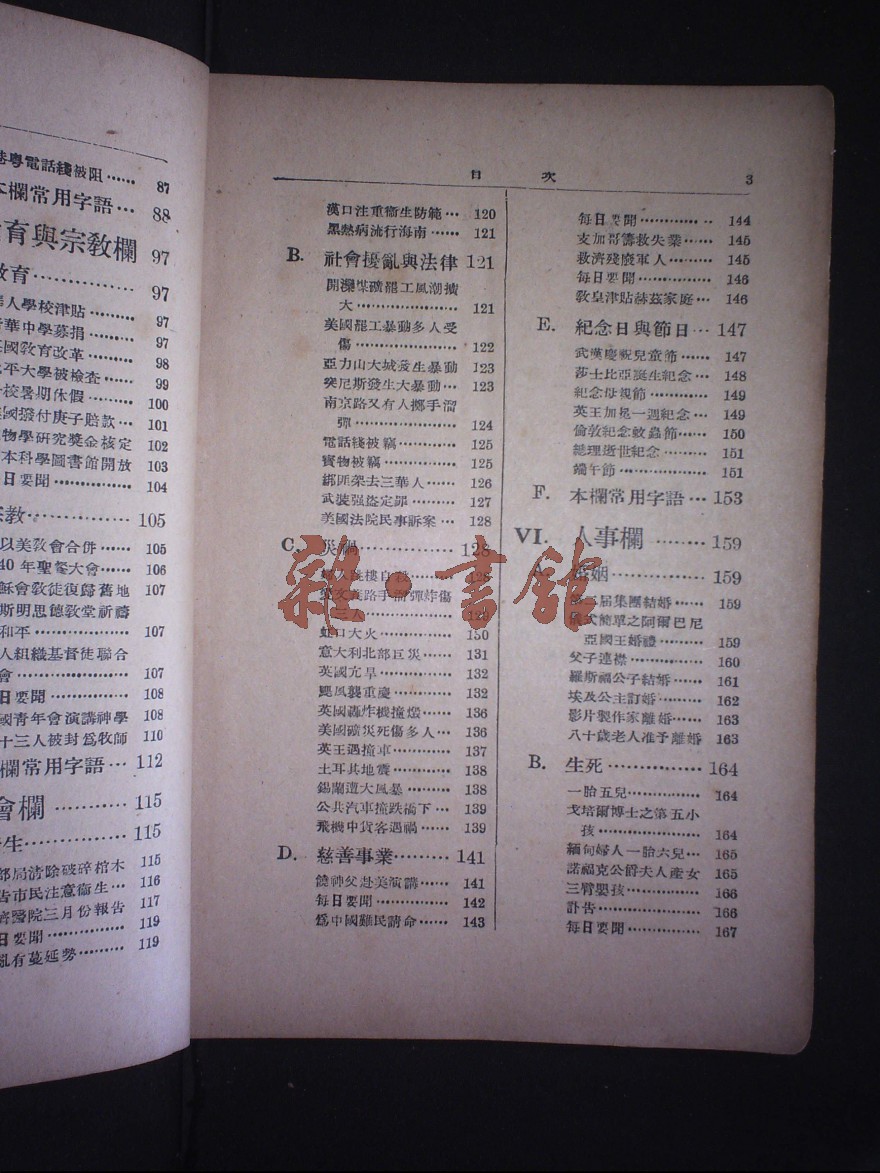 粵電話綫被阻…… 87
本欄常用字語… 88
育與宗敎欄 97
敎育………… 97
人學校津貼……… 97
華中學募捐……… 97
國敎育改革……… 98
平大學被檢查…… 99
校暑期休假……… 100
國撥付庚子賠款… 101
物學研究獎金核定 102
本科學圖書館開放 103
日要聞………… 104
宗敎………… 105
以美敎會合併…… 105
40年聖餐大會…… 106
穌會敎徒復歸舊地 107
斯明思德敎堂祈禱
和平………… 107
人組織基督徒聯合
會………… 107
日要聞………… 108
國靑年會演講神學 108
十三人被封爲牧師 110
欄常用字語… 112
會欄……… 115
生………… 115
部局淸除破碎棺木 115
告市民注意衞生… 116
醫院三月份報告 117
日要聞………… 119
亂有蔓延勢……… 119
目 次 3
漢口注重衞生防範… 120
黑熱病流行海南…… 121
B. 社會擾亂與法律 121
開灤煤礦罷工風潮擴
大………… 121
美國罷工暴動多人受
傷………… 122
亞力山大城發生暴動 123
突尼斯發生大暴動… 123
南京路又有人擲手溜
彈………… 124
電話綫被竊……… 125
寳物被竊………… 125
綁匪架去三華人…… 126
武裝强盜定罪……… 127
美國法院民事訴案… 128
C. 災禍………… 128
婦人跳樓自殺……… 128
愛文義路手溜彈炸傷
三人………… 129
虹口大火………… 150
意大利北部巨災…… 131
英國亢旱………… 132
颶風襲重慶……… 132
英國轟炸機撞燬…… 136
美國礦災死傷多人… 136
英王遇撞車……… 137
土耳其地震……… 138
錫蘭遭大風暴……… 138
公共汽車撞跌橋下… 139
飛機中貨客遇禍…… 139
D. 慈善事業……… 141
饒神父赴美演講…… 141
每日要聞………… 142
爲中國難民請命…… 143
每日要聞………… 144
支加哥籌救失業…… 145
救濟殘廢軍人……… 145
每日要聞………… 146
敎皇津貼赫茲家庭… 146
E. 紀念日與節日… 147
武漢慶祝兒童節…… 147
莎士比亞誕生紀念… 148
紀念母親節……… 149
英王加冕一週紀念… 149
倫敦紀念蚊蟲節…… 150
總理逝世紀念……… 151
端午節………… 151
F. 本欄常用字語… 153
VI. 人事欄……… 159
A. 婚姻………… 159
第三屆集團結婚…… 159
儀式簡單之阿爾巴尼
亞國王婚禮……… 159
父子連襟………… 160
羅斯福公子結婚…… 161
埃及公主訂婚……… 162
影片製作家離婚…… 163
八十歲老人准予離婚 163
B. 生死………… 164
一胎五兒………… 164
戈培爾博士之第五小
孩………… 164
緬甸婦人一胎六兒… 165
諾福克公爵夫人產女 165
三臂嬰孩………… 166
訃告………… 166
每日要聞………… 167
雜·書館